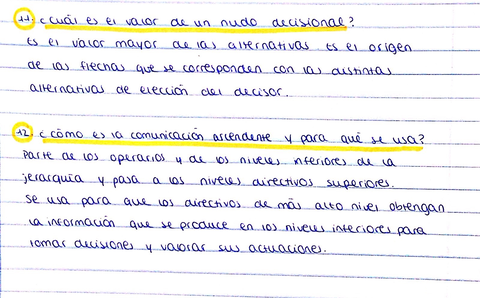 11. ¿Cuál es el valor de un nudo decisional?
Es el valor mayor de las alternativas. Es el origen
de las flechas que se corresponden con las distintas
alternativas de elección del decisor.
12. ¿Cómo es la comunicación ascendente y para qué se usa?
Parte de los operarios y de los niveles inferiores de la
jerarquía y pasa a los niveles directivos superiores.
Se usa para que los directivos de más alto nivel obtengan
la información que se produce en los niveles inferiores para
tomar decisiones y valorar sus actuaciones.